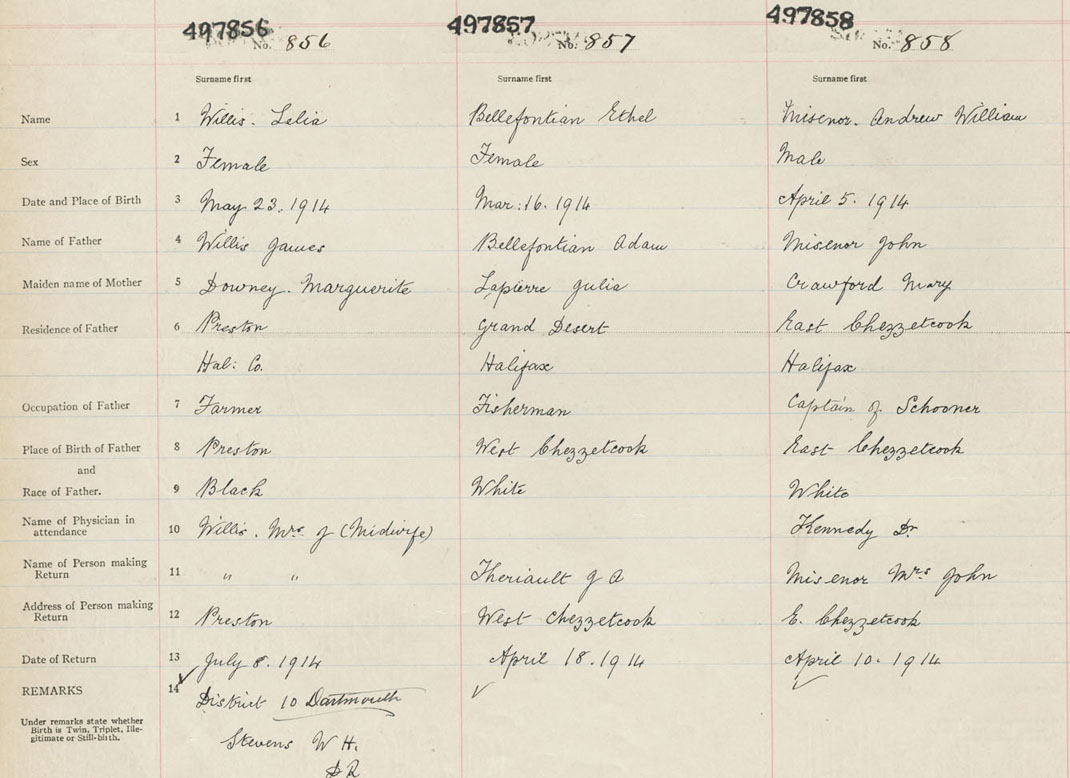 497856 497857 497858
No. 856 No. 857 No. 858
Surname first Surname first Surname first
Name 1 Willis. Lelia Bellefontian Ethel Misenor. Andrew William
Sex 2 Female Female Male
Date and Place of Birth 3 May 23. 1914 Mar: 16. 1914 April 5. 1914
Name of Father 4 Willis James Bellefontian Adam Misenor John
Maiden name of Mother 5 Downey. Marguerite Lapierre Julia Crawford Mary
Residence of Father 6 Preston Grand Desert East Chezzetcook
Hal: Co. Halifax Halifax
Occupation of Father 7 Farmer Fisherman Captain of Schooner
Place of Birth of Father 8 Preston West Chezzetcook East Chezzetcook
and
Race of Father. 9 Black White White
Name of Physician in
attendance 10 Willis. Mrs J (Midwife) Kennedy Dr.
Name of Person making
Return 11 " " Theriault J A Misenor Mrs John
Address of Person making
Return 12 Preston West Chezzetcook E. Chezzetcook
Date of Return 13 July 8. 1914 April 18. 1914 April 10. 1914
REMARKS 14 District 10 Dartmouth
Under remarks state whether
Birth is Twin, Triplet, Ille-
gitimate or Still-birth.
Stevens W H.
D R